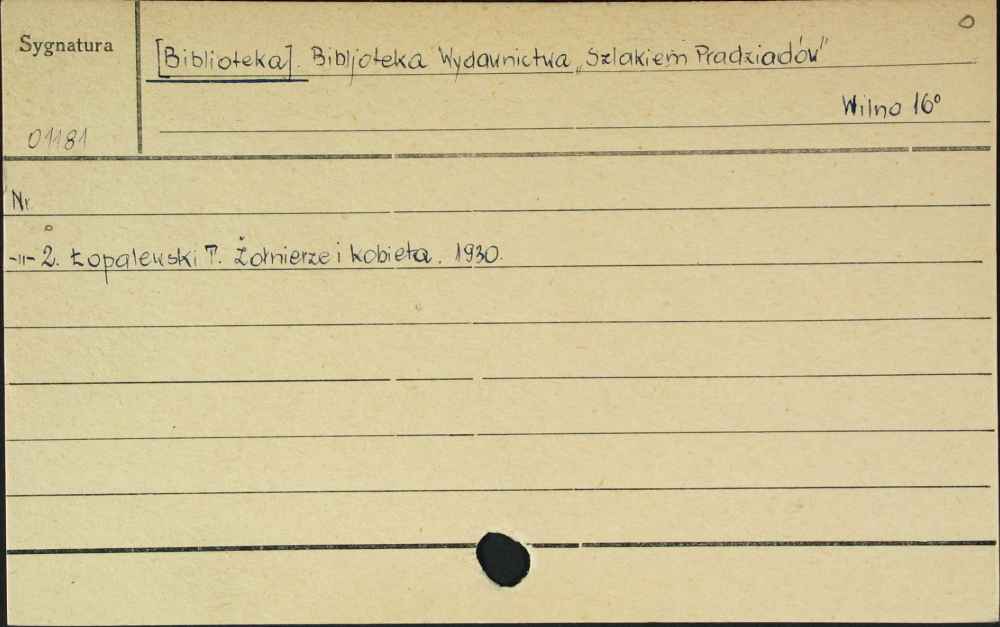 O
Sygnatura
[Biblioteka]. Bibljoteka Wydawnictwa „Szlakiem Pradziadów"
Wilno 16°
01181
Nr.
-"- 2. Łopalewski T. Żołnierze i kobieta. 1930.